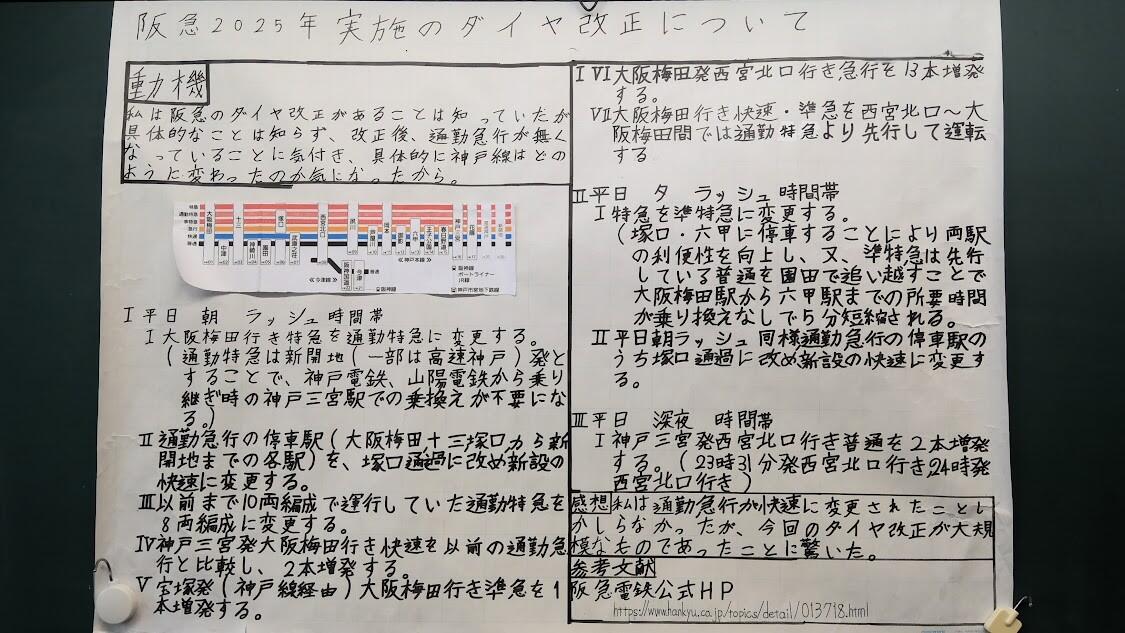 阪急2025年実施のダイヤ改正について
動機
私は阪急のダイヤ改正があることは知っていたが
具体的なことは知らず、改正後、通勤急行が無く
なっていることに気付き、具体的に神戸線はどの
ように変わったのか気になったから。
特急
通勤特急
準特急
急行
快速
普通
大阪梅田
中津
十三
神崎川
園田
塚口
武庫之荘
西宮北口
夙川
芦屋川
岡本
御影
六甲
王子公園
春日野道
神戸三宮
花隈
阪神国道
今津
普通
≪今津線≫
≪神戸本線≫
阪神線
阪神線
ポートライナー
JR線
神戸市営地下鉄線
Ⅰ平日 朝 ラッシュ時間帯
Ⅰ大阪梅田行き特急を通勤特急に変更する。
(通勤特急は新開地(一部は高速神戸)発と
することで、神戸電鉄、山陽電鉄から乗り
継ぎ時の神戸三宮駅での乗換えが不要にな
る。)
Ⅱ通勤急行の停車駅(大阪梅田十三塚口から新
開地までの各駅)を、塚口通過に改め新設の
快速に変更する。
Ⅲ以前まで10両編成で運行していた通勤特急を
8両編成に変更する。
Ⅳ神戸三宮発大阪梅田行き快速を以前の通勤急
行と比較し、2本増発する。
Ⅴ宝塚発(神戸線経由)大阪梅田行き準急を1
本増発する。
ⅠⅥ大阪梅田発西宮北口行き急行を13本増発
する。
Ⅶ大阪梅田行き快速・準急を西宮北口～大
阪梅田間では通勤特急より先行して運転
する
Ⅱ平日 夕 ラッシュ時間帯
Ⅰ特急を準特急に変更する。
(塚口・六甲に停車することにより両駅
の利便性を向上し、又、準特急は先行
している普通を園田で追い越すことで
大阪梅田駅から六甲駅までの所要時間
が乗り換えなしで5分短縮される。
Ⅱ平日朝ラッシュ同様通勤急行の停車駅の
うち塚口通過に改め新設の快速に変更す
る。
Ⅲ平日 深夜 時間帯
Ⅰ神戸三宮発西宮北口行き普通を2本増発
する。(23時31分発西宮北口行き24時発
西宮北口行き)
感想私は通勤急行が快速に変更されたことし
かしらなかったが、今回のダイヤ改正が大規
模なものであったことに驚いた。
参考文献
阪急電鉄公式HP
https://www.hankyu.co.jp/topics/detail/013718.html